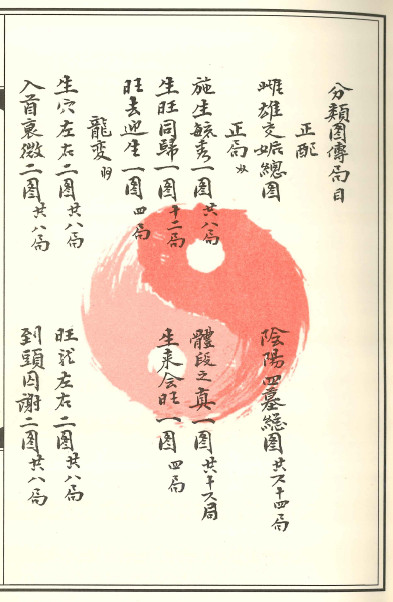 分類图傳局目
正配
雌雄交媾總图
陰陽四墓總图 共六十四局
正局
施生毓秀一图 共八局
體段之真一图 共十六局
生旺同歸一图 十二局
生来会旺一图 四局
旺去迎生一图 四局
龍变
生穴左右二图 共八局
旺龙左右二图 共八局
入首衰微二图 共八局
到頭囚謝二图 共八局